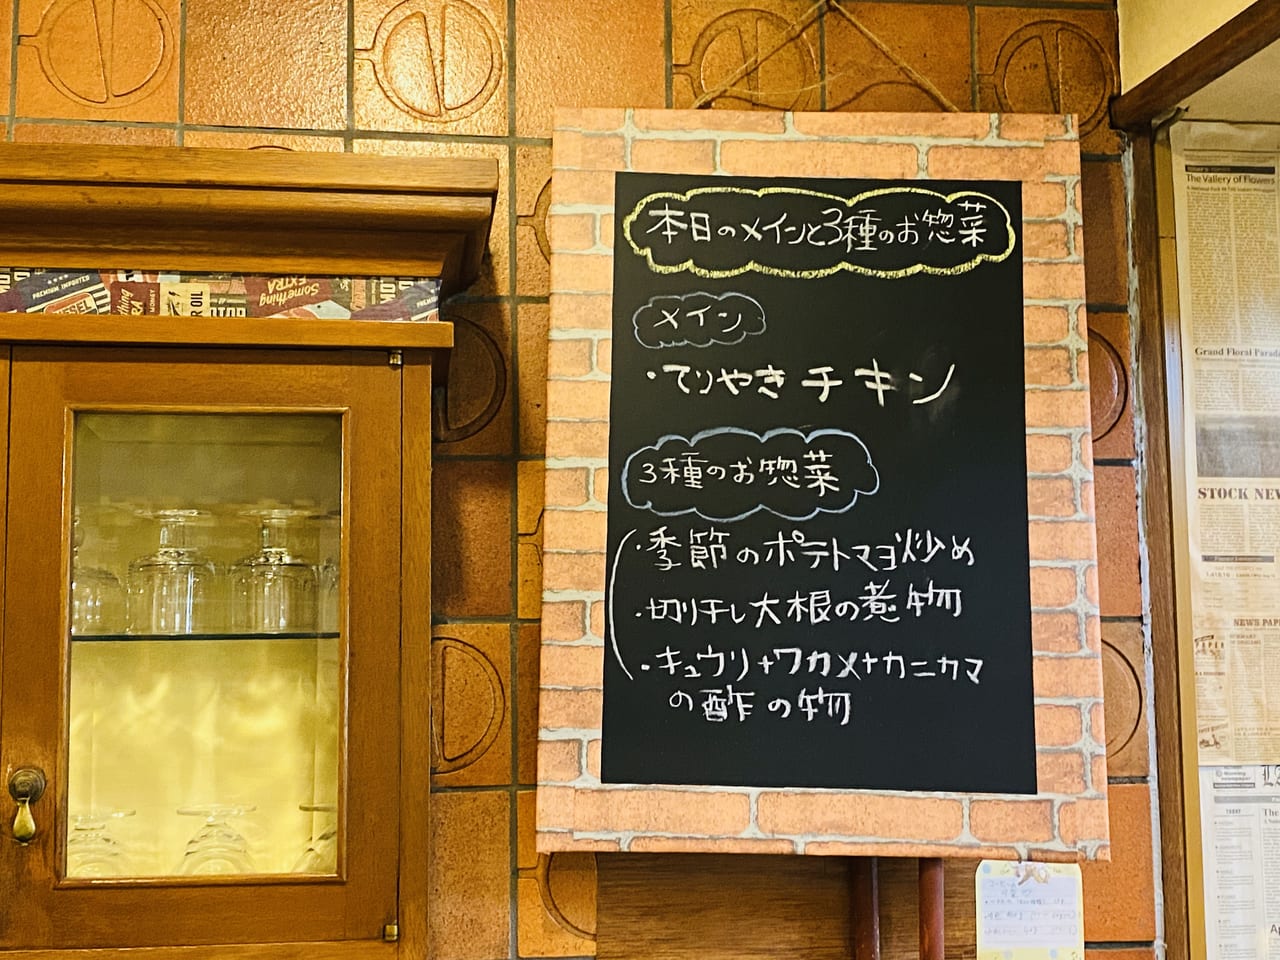 本日のメインと3種のお惣菜
メイン
・てりやきチキン
3種のお惣菜
・季節のポテトマヨ炒め
・切り干し大根の煮物
・キュウリ+ワカメ+カニカマ
の酢の物
PREMIUM IMPORTED
Something
EXTRA
OIL
The Vallery of Flowers
Grand Floral Parade
STOCK NEW
NEWS PAP